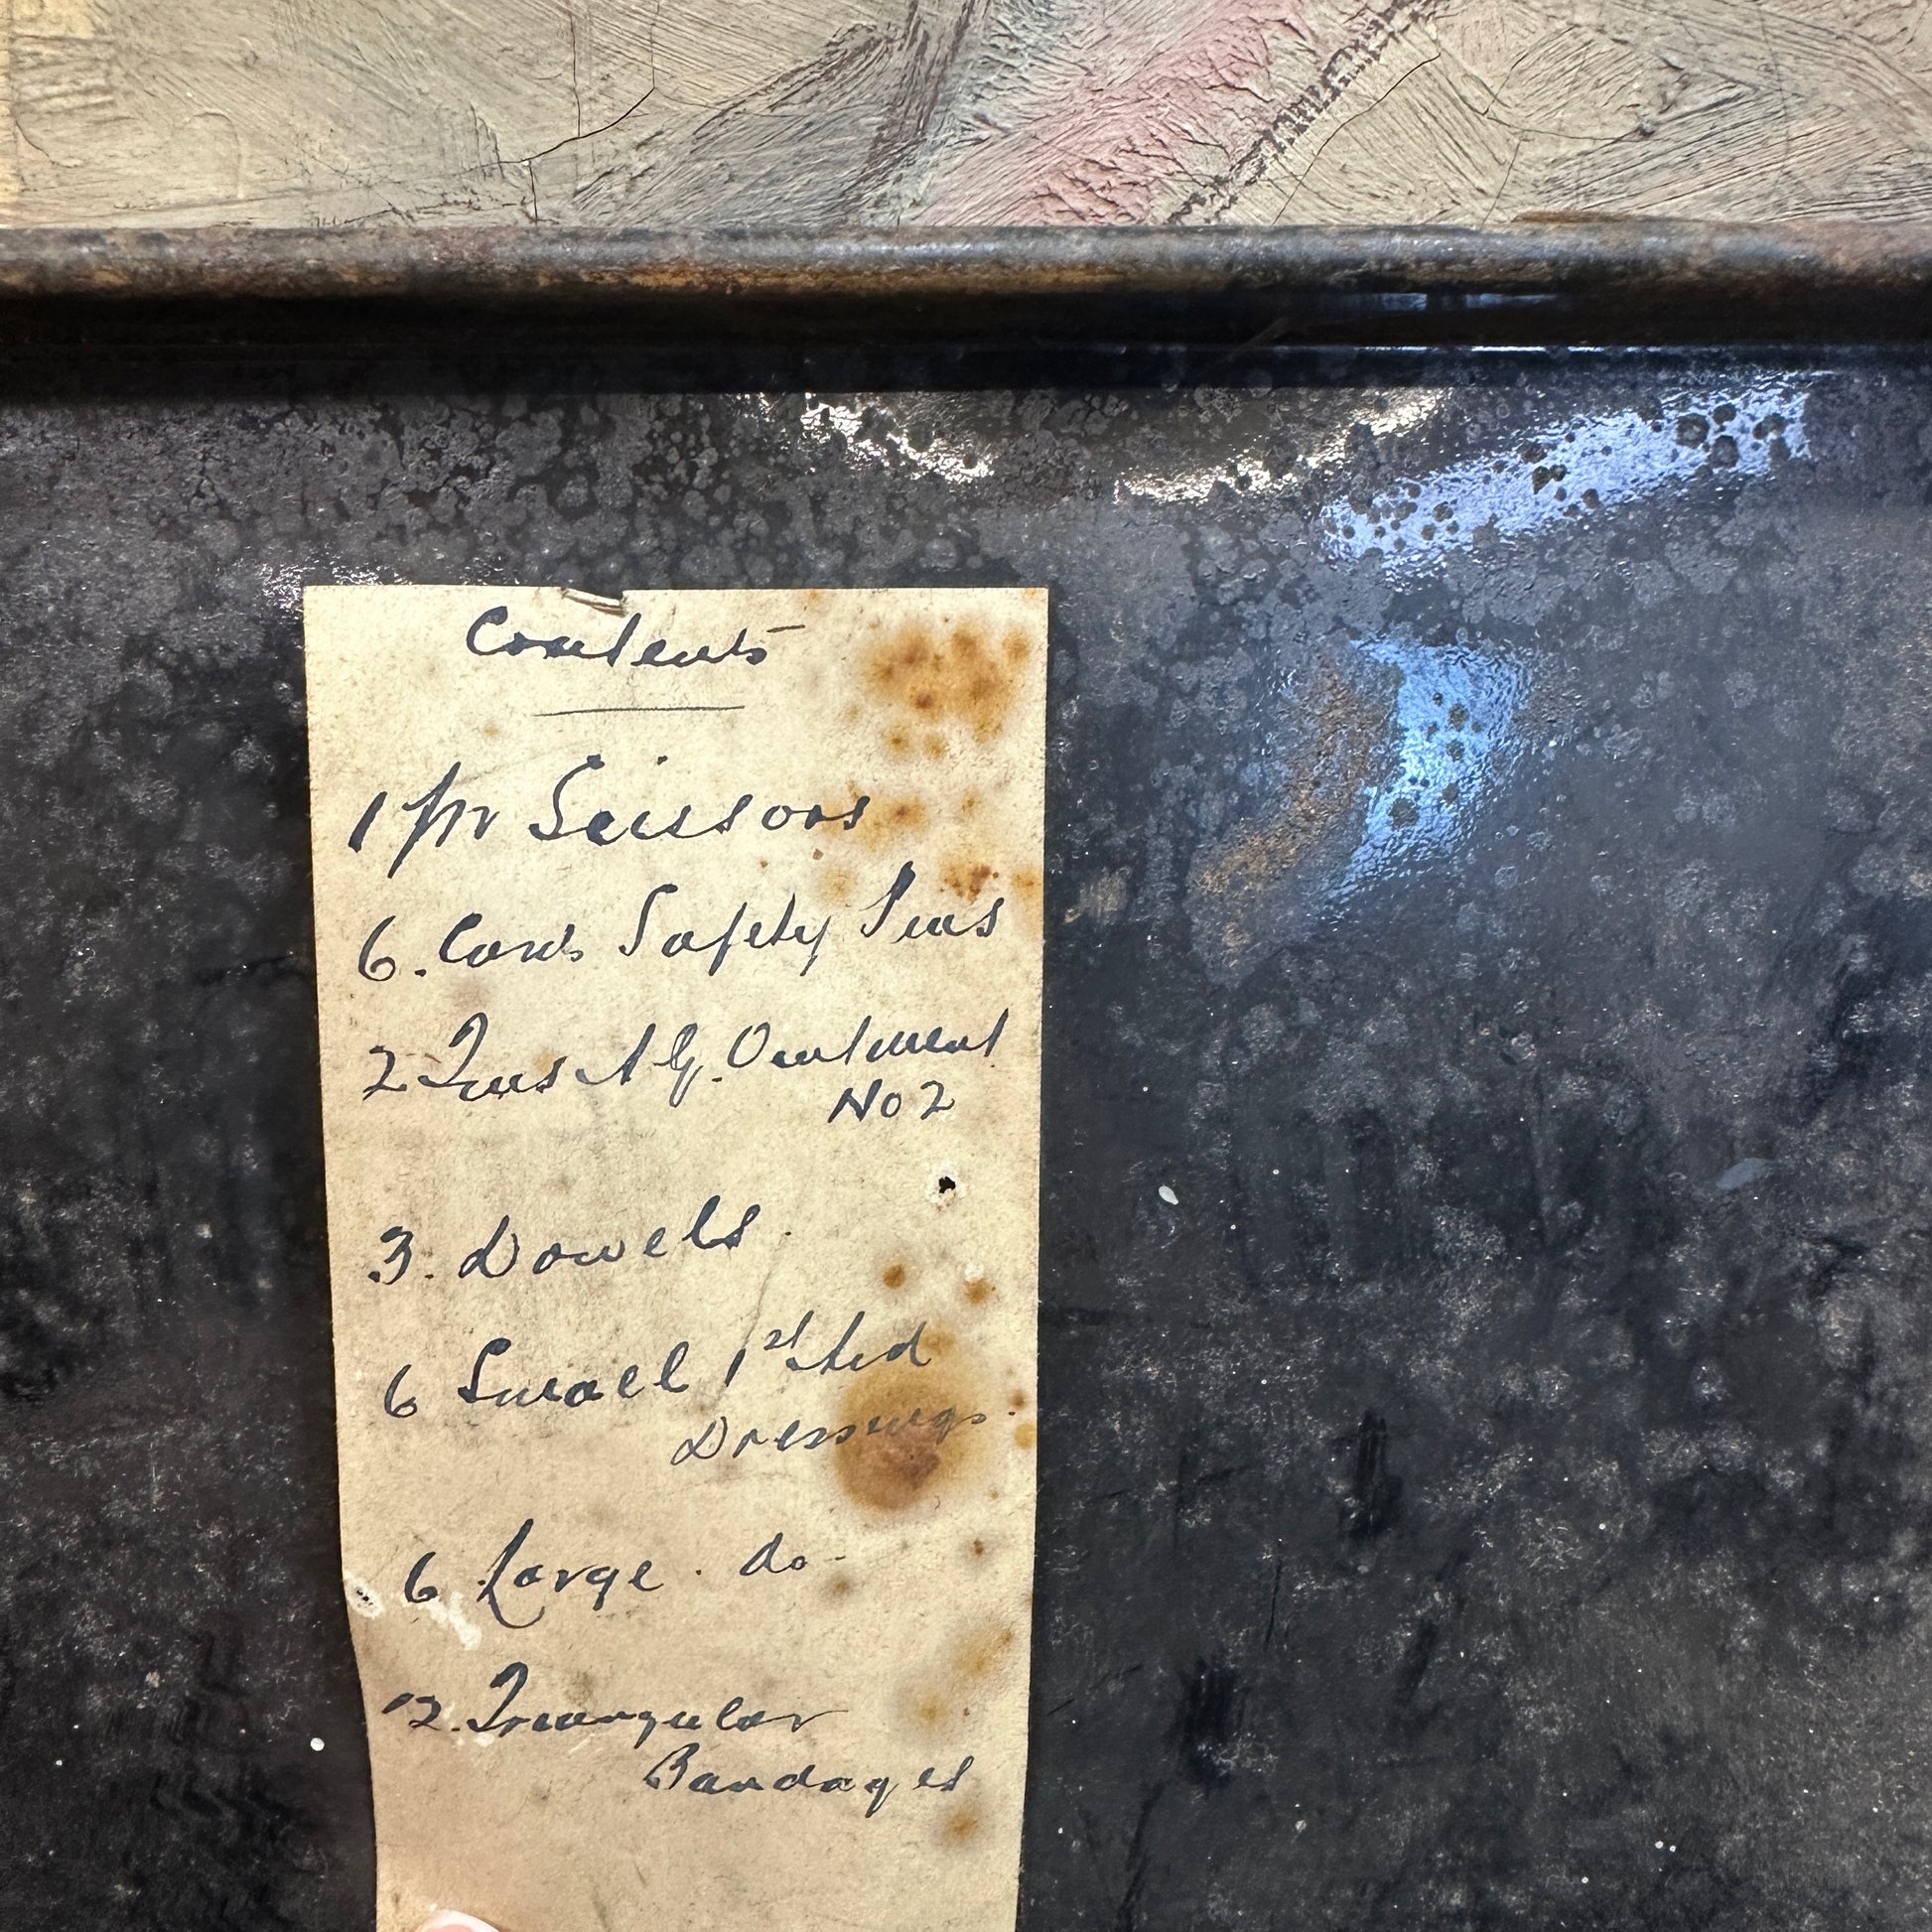 Contents
1 pr Scissors
6. Cards Safety Pins
2 Tins A G. Ointment
No 2
3. Dowels.
6 Small 1st Aid
Dressings.
6 Large. do-
2. Triangular
Bandages